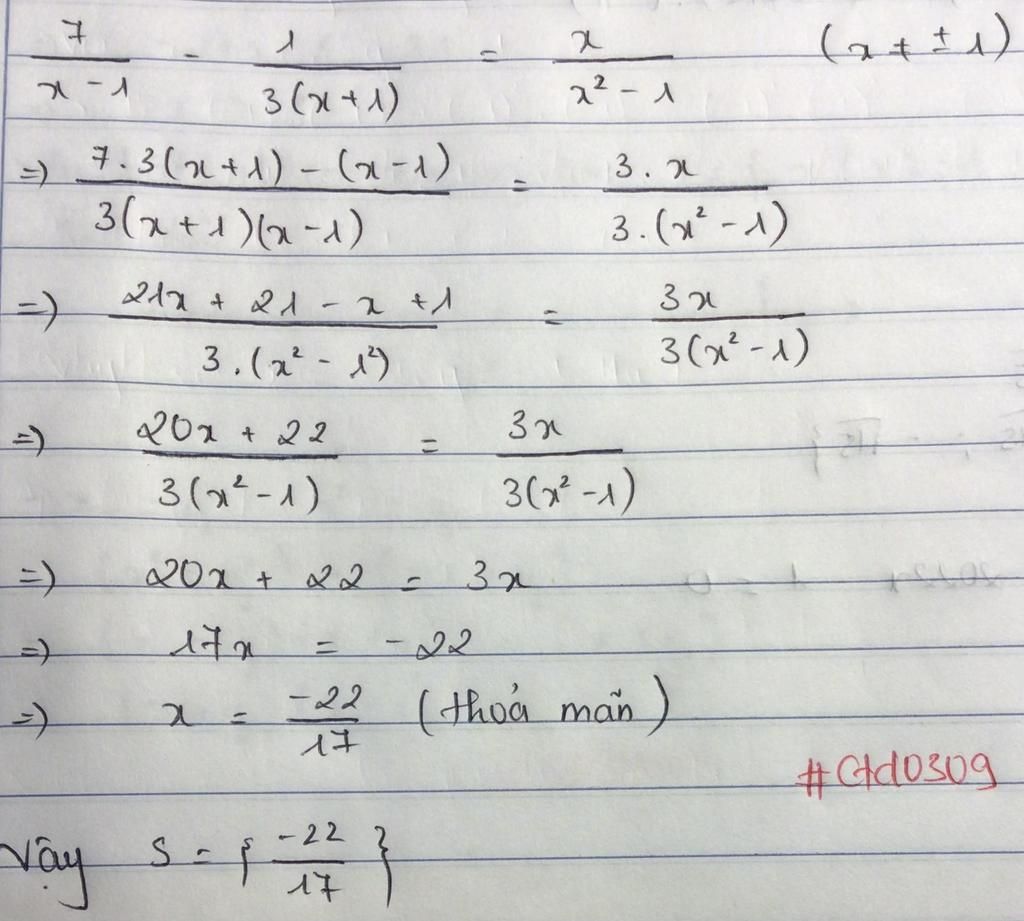 7/(x - 1) - 1/(3(x + 1)) = x/(x² - 1) (x ≠ ± 1)
=> (7 . 3(x + 1) - (x - 1))/(3(x + 1)(x - 1)) = (3 . x)/(3 . (x² - 1))
=> (21x + 21 - x + 1)/(3 . (x² - 1²)) = 3x/(3(x² - 1))
=> (20x + 22)/(3(x² - 1)) = 3x/(3(x² - 1))
=> 20x + 22 = 3x
=> 17x = -22
=> x = -22/17 (thoả mãn)
#Ctd0309
Vậy S = { -22/17 }